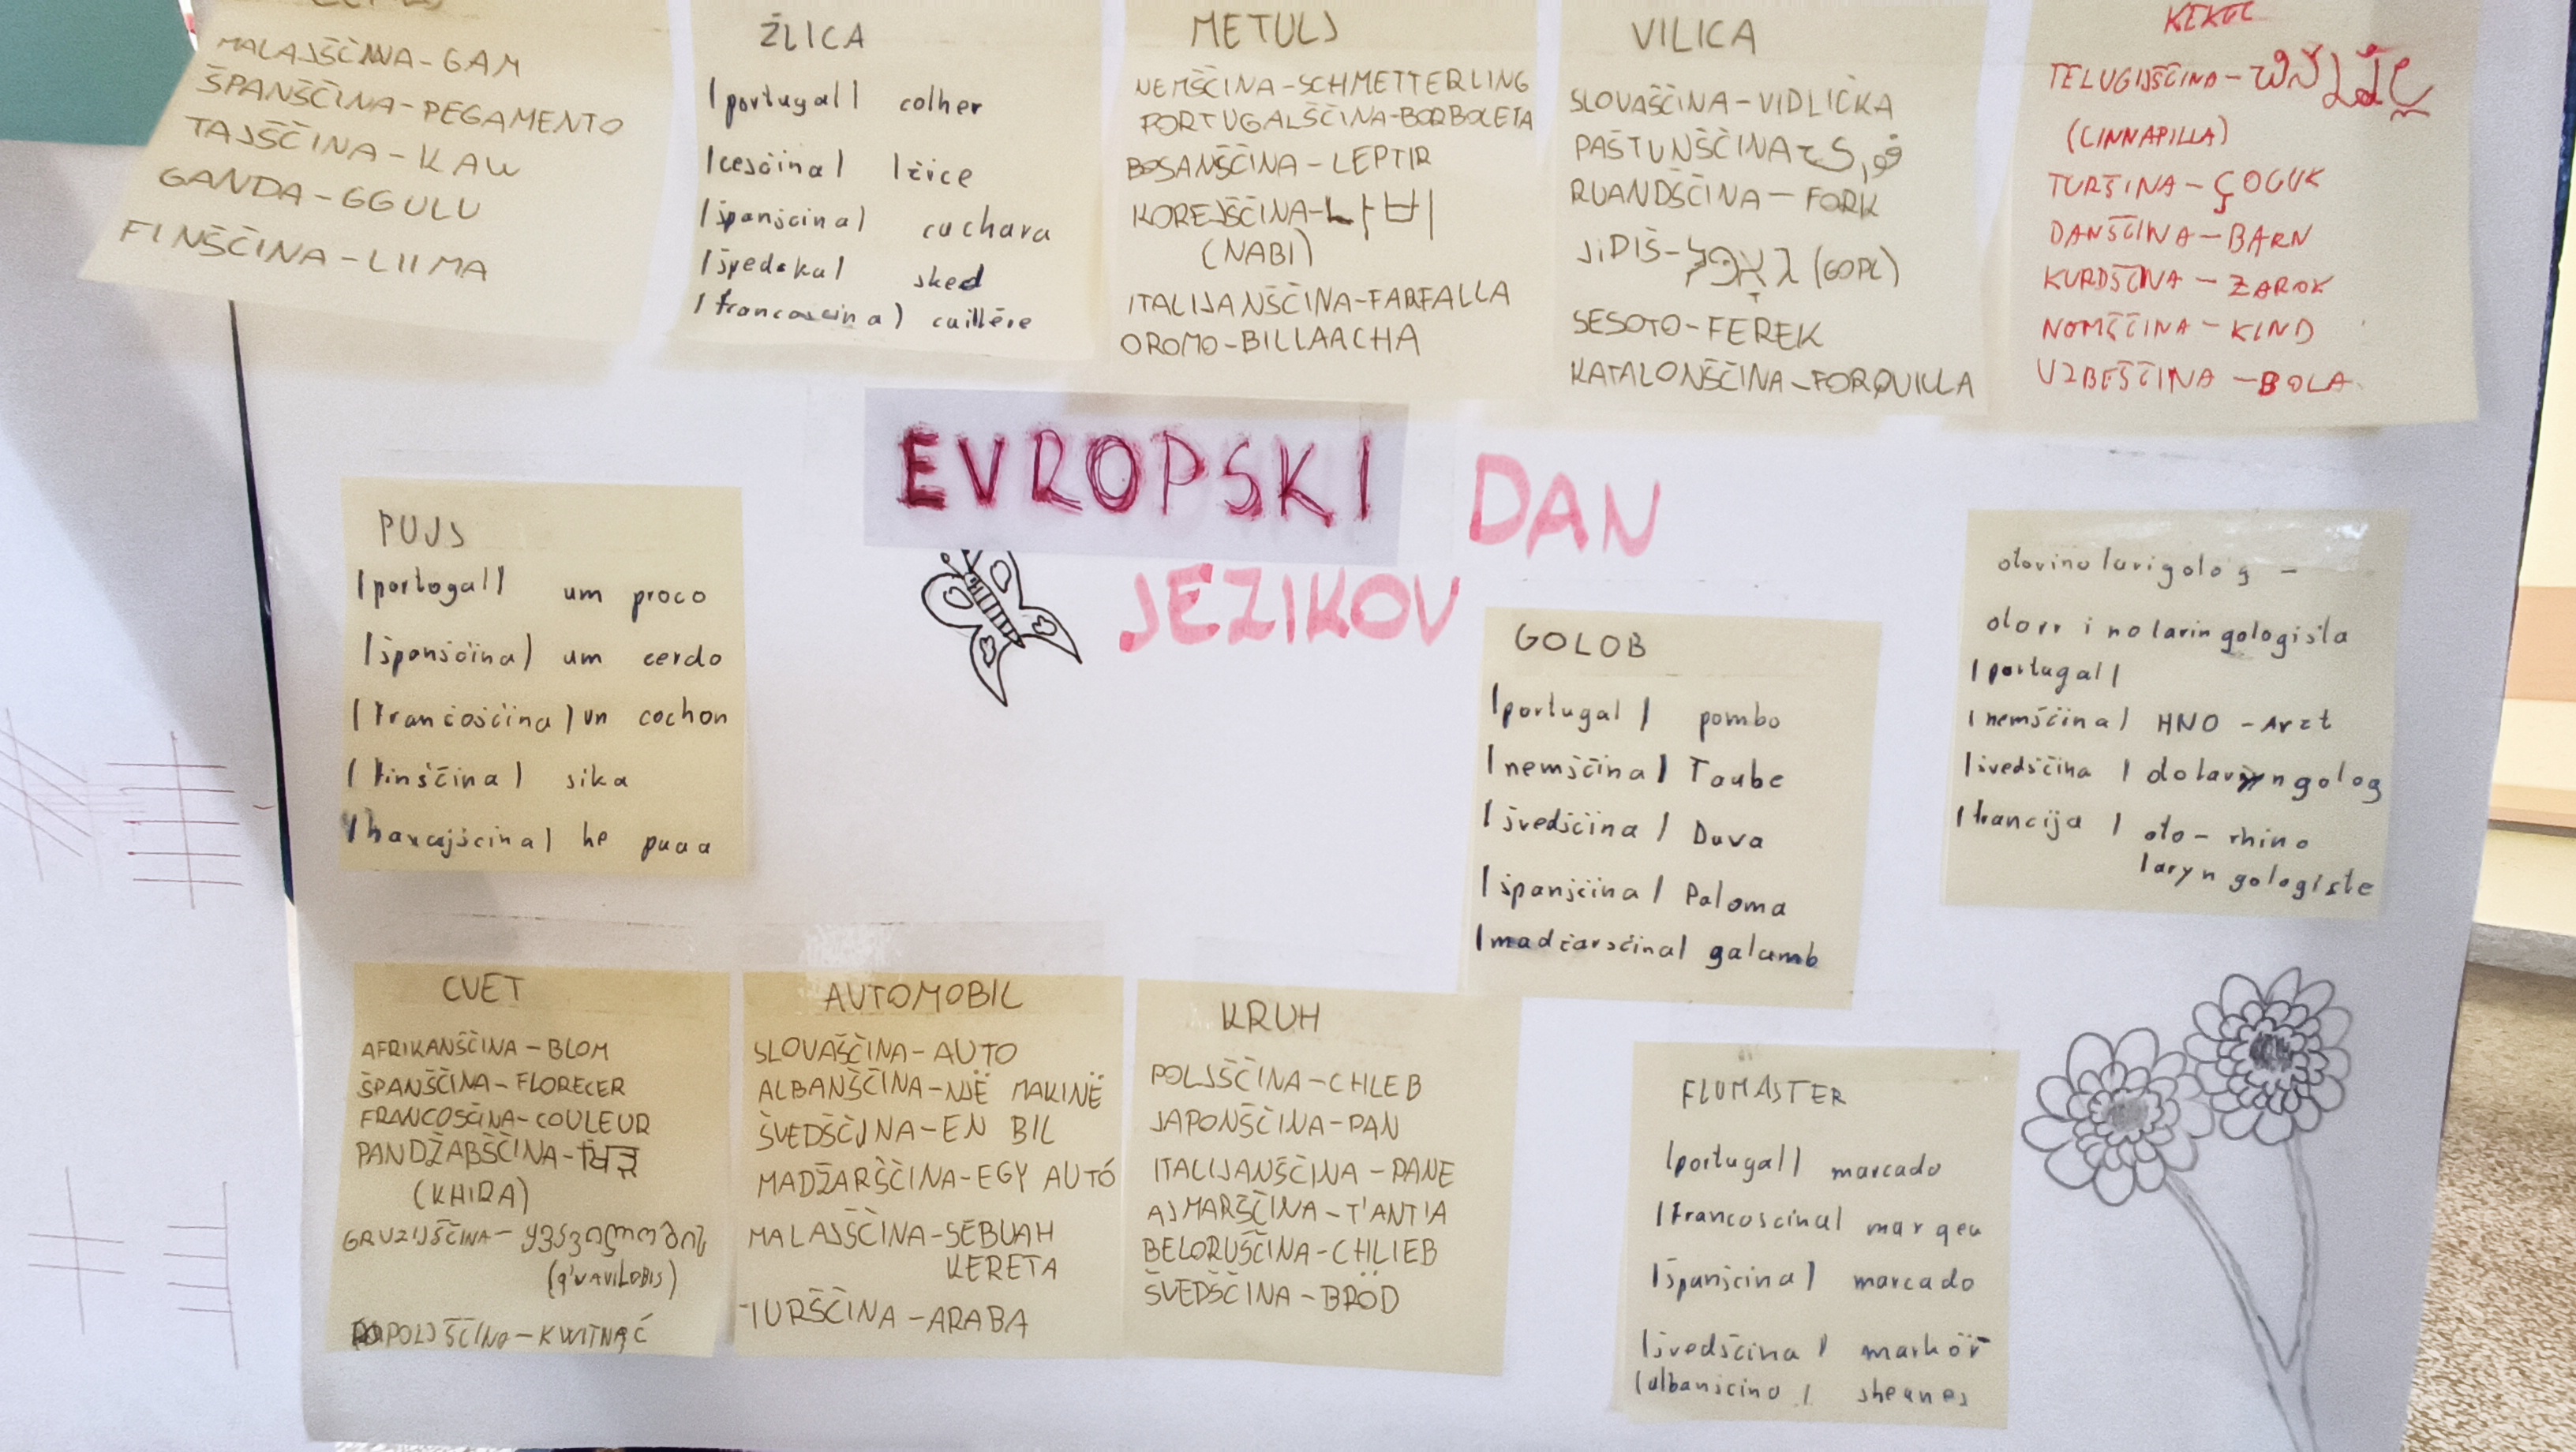 MALAJŠČINA-GAM
ŠPANŠČINA-PEGAMENTO
TAJŠČINA-KAW
GANDA-GGULU
FINŠČINA-LIIMA
ŽLICA
|portugal| colher
|cesčina| lžice
|španjscina| cuchara
|švedska| sked
|francoscina) cuillére
METULJ
NEMŠČINA-SCHMETTERLING
PORTUGALŠČINA-BORBOLETA
BOSANŠČINA-LEPTIR
KOREJŠČINA-나비
(NABI)
ITALIJANŠČINA-FARFALLA
OROMO-BILLAACHA
VILICA
SLOVAŠČINA-VIDLIČKA
PAŠTUNŠČINA
RUANDŠČINA-FORK
JIDIŠ- (GOPL)
SESOTO-FEREK
KATALONŠČINA-FORQUILLA
TELUGIJŠČINA-
(CINNAPILLA)
TURŠINA-ÇOCUK
DANŠČINA-BARN
KURDŠČINA-ZAROK
NOMŠČINA-KIND
UZBEŠČINA-BOLA
EVROPSKI DAN
JEZIKOV
PUJS
|portogal| um proco
|španščina) um cerdo
(francoščina) un cochon
(finščina) sika
he puaa
GOLOB
|portugal| pombo
|nemščina| Taube
|švedščina| Duva
|španjščina| Paloma
|madžarščina| galamb
otorinolarigolog -
otorrinolaringologista
|portugal|
|nemščina| HNO-Arzt
|švedščina|
|francija| oto-rhino
laryngologiste
CVET
AFRIKANŠČINA-BLOM
ŠPANŠČINA-FLORECER
FRANCOŠČINA-COULEUR
PANDŽABŠČINA-
(KHIRA)
GRUZIJŠČINA-ყვავილობის
(q'VAVILOBIS)
POLJŠČINA-KWITNĄĆ
AVTOMOBIL
SLOVAŠČINA-AUTO
ALBANŠČINA-NJË MAKINË
ŠVEDŠČINA-EN BIL
MADŽARŠČINA-EGY AUTÓ
MALAJŠČINA-SEBUAH
KERETA
TURŠČINA-ARABA
KRUH
POLJŠČINA-CHLEB
JAPONŠČINA-PAN
ITALIJANŠČINA-PANE
AJMARŠČINA-T'ANT'A
BELORUŠČINA-CHLIEB
ŠVEDŠČINA-BRÖD
FLUMASTER
|portugal| marcado
|francoscina| marqeu
|španjcina| marcado
|švedščina|
|albanscina|